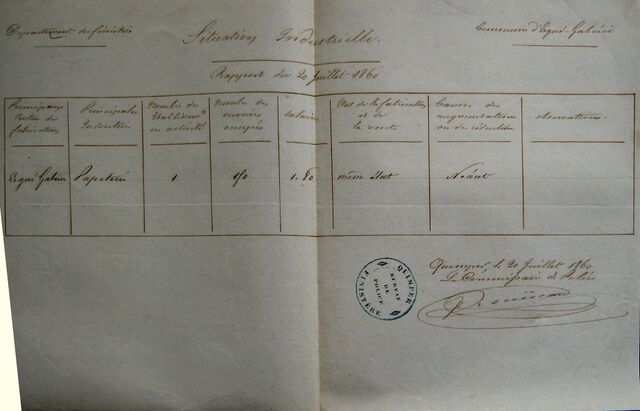 Département du finistère
Situation Industrielle.
Commune d'Ergué-Gabéric
Rapport du 20 Juillet 1860
Principaux Centres de fabrication
Principales Industries
Nombre des Etablissemts en activité
Nombre des ouvriers occupés
Salaires
Etat de la fabrication et de la vente
Causes des augmentations ou de réduction
observations.
Ergué Gabéric
Papeterie
1
150
1. 50
même état
Néant
Quimper, le 20 Juillet 1860
Le Commissaire de Police
QUIMPER
FINISTÈRE
BUREAU
DE
POLICE